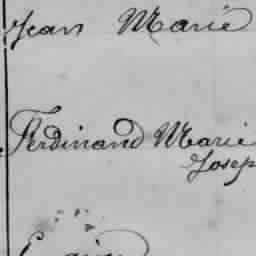 Jean Marie
Ferdinand Marie
Josep